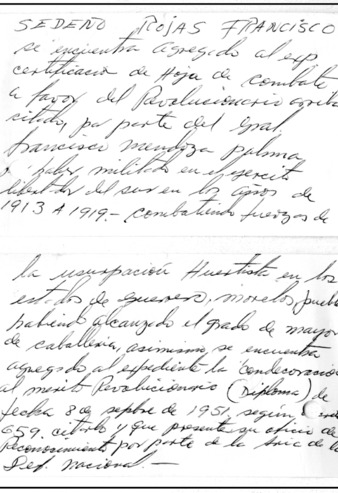 SEDEÑO ROJAS FRANCISCO
se encuentra agregado al exp
certificacion de Hoja de combate
a favor del Revolucionario arriba
citado, por parte del Gral,
francisco mendoza palma,
haber militado en el ejercito
libertador del sur en los años de
1913 A 1919.- combatiendo fuerzas de
la usurpación Huertista en los
estados de guerrero, morelos, puebla
habiendo alcanzado el grado de mayor
de caballeria, asimismo se encuentra
agregado al expediente la Condecoración
al merito Revolucionario (Diploma) de
fecha 8 de septbre de 1951, según
659. citado y que presenta su oficio de
Reconocimiento por parte de la Sria de la
Def. Nacional.-